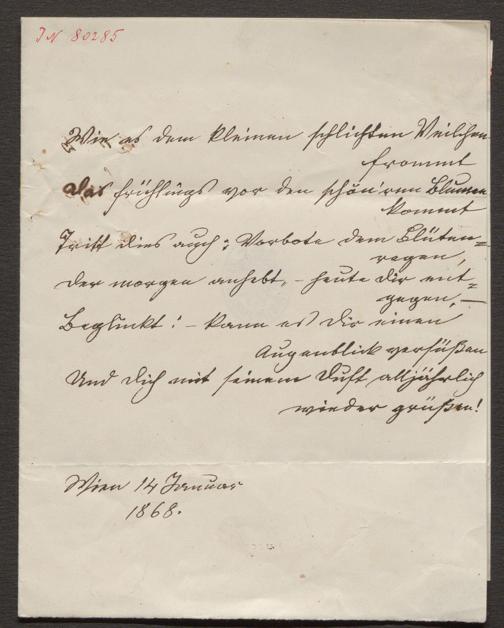 IN 80285
Wie es dem kleinen schlichten Veilchen
frommt
Das Frühlings vor den schön'ren Blumen
kommt
Tritt dies auch: Vorbote dem Blüten=
regen,
Der morgen anhebt, – heute dir ent=
gegen, –
Beglückt! – kann es Dir einen
Augenblick versüßen
Und Dich mit seinem Duft alljährlich
wieder grüßen!
Wien 14 Januar
1868.